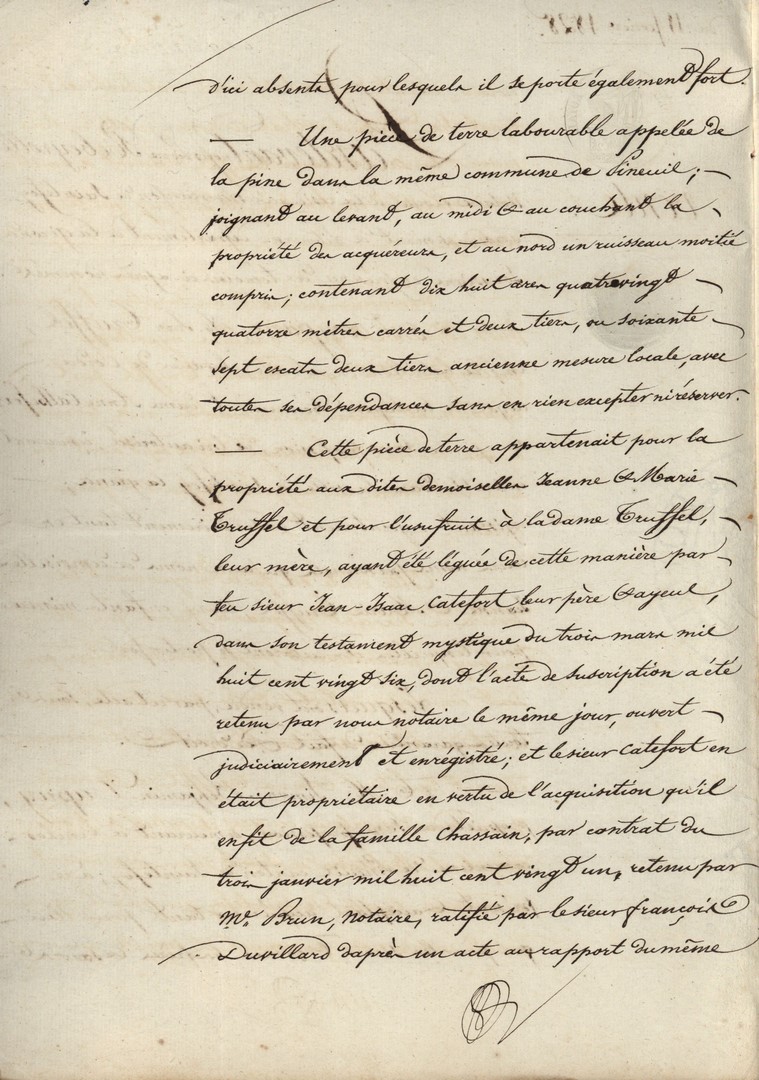 d'ici absents pour lesquels il se porte également fort.
— Une pièce de terre labourable appelée de
la pine dans la même commune de Lineuil ; —
joignant au levant, au midi & au couchant la
propriété des acquéreurs, et au nord un ruisseau moitié
compris ; contenant dix huit ares quatrevingt —
quatorze mètres carrés et deux tiers, ou soixante —
sept escats deux tiers ancienne mesure locale, avec
toutes ses dépendances sans en rien excepter ni réserver.
— Cette pièce de terre appartenait pour la
propriété aux dites demoiselles Jeanne & Marie —
Truffel et pour l'usufruit à la dame Truffel, —
leur mère, ayant été léguée de cette manière par —
feu sieur Jean-Isaac Catefort leur père & ayeul,
dans son testament mystique du trois mars mil
huit cent vingt six, dont l'acte de suscription a été
retenu par nous notaire le même jour, ouvert —
judiciairement et enrégistré ; et le sieur Catefort en
était propriétaire en vertu de l'acquisition qu'il
en fit de la famille Chassain, par contrat du
trois janvier mil huit cent vingt un, retenu par
Me. Brun, Notaire, ratifié par le sieur françois
Duvillard d'après un acte au rapport du même